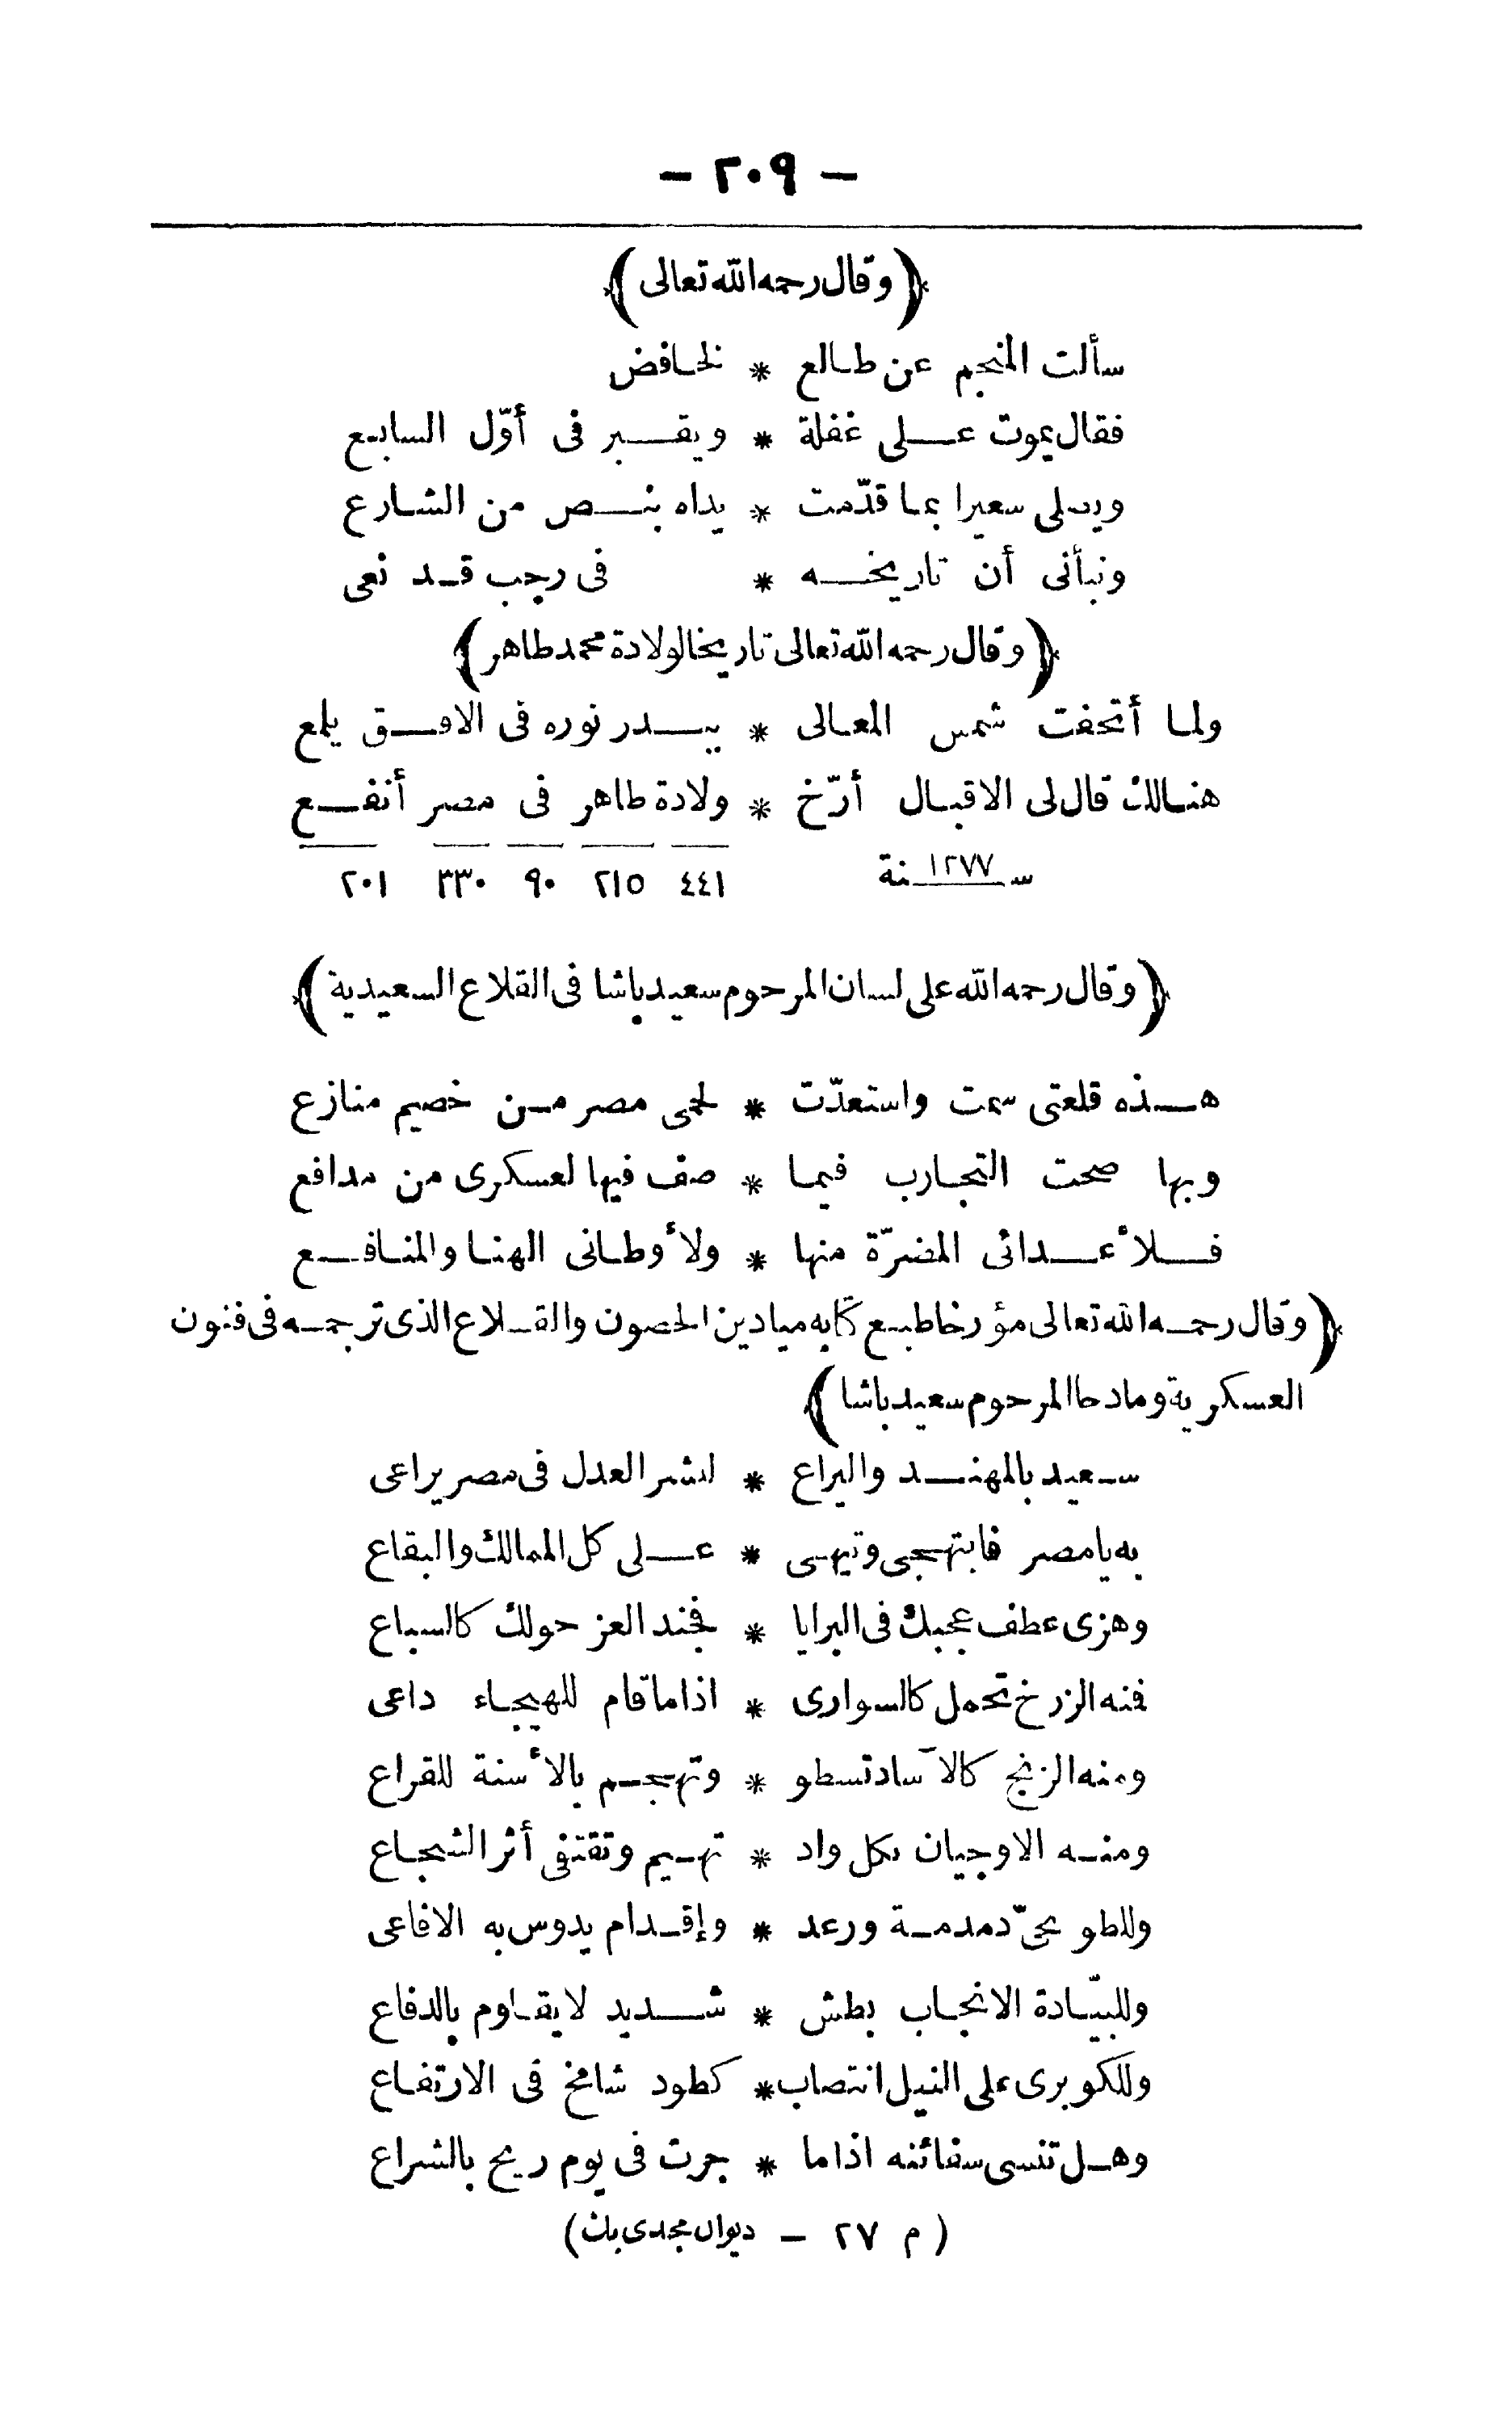 — ٢٠٩ —
﴿ وقال رحمه الله تعالى ﴾
سألت المنجم عن طالع * لخافض
فقال يموت على غفلة * ويقبر فى أوّل السابع
ويصلى سعيرا بما قدّمت * يداه بنص من الشارع
ونبأنى أن تاريخه * فى رجب قد نعى
﴿ وقال رحمه الله تعالى تاريخا لولادة محمد طاهر ﴾
ولما أتحفت شمس المعالى * ببدر نوره فى الافق يلمع
هنالك قال لى الاقبال أرّخ * ولادة طاهر فى مصر أنفع
سنة ١٢٧٧ ٤٤١ ٢١٥ ٩٠ ٣٣٠ ٢٠١
﴿ وقال رحمه الله على لسان المرحوم سعيد باشا فى القلاع السعيدية ﴾
هذه قلعتى سمت واستعدّت * لحمى مصر من خصيم منازع
وبها صحت التجارب فيما * صف فيها لعسكرى من مدافع
فلأعدائى المضرّة منها * ولأوطانى الهنا والمنافع
﴿ وقال رحمه الله تعالى مؤرخا طبع كتابه ميادين الحصون والقلاع الذى ترجمه فى فنون
العسكرية ومادحا المرحوم سعيد باشا ﴾
سعيد بالمهند واليراع * لنشر العدل فى مصر يراعى
به يا مصر فابتهجى وتيهى * على كل الممالك والبقاع
وهزى عطف عجبك فى البرايا * فجند العز حولك كالسباع
فنه الزرخ تحمل كالسوارى * اذا ما قام للهيجاء داعى
ومنه الزنج كالآساد تسطو * وتهجم بالأسنة للقراع
ومنه الاوجيان بكل واد * تهيم وتقتفى أثر الشجاع
وللطوبجىّ دمدمة ورعد * وإقدام يدوس به الافاعى
وللبيّادة الانجاب بطش * شديد لا يقاوم بالدفاع
وللكوبرى على النيل انتصاب * كطود شامخ فى الارتفاع
وهل تنسى سفائنه اذا ما * جرت فى يوم ريح بالشراع
( م ٢٧ — ديوان مجدى بك )